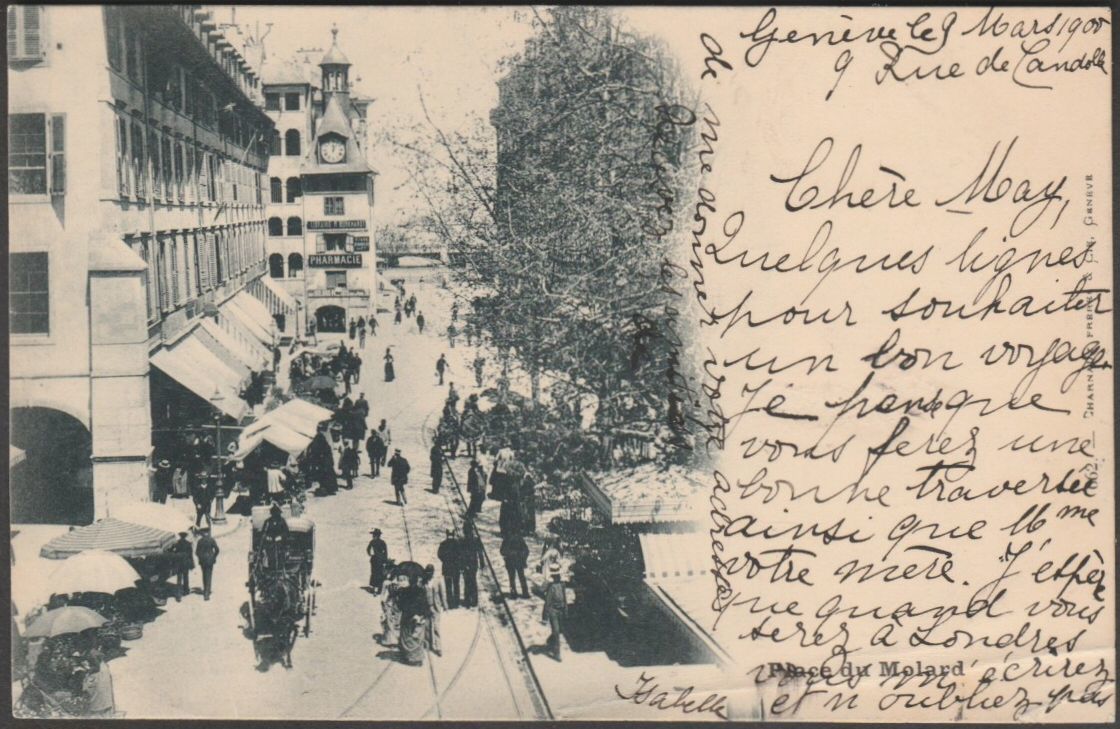 Genève le 9 Mars 1900
9 Rue de Candolle
Chère May,
Quelques lignes
pour souhaiter
un bon voyage.
Je pense que
vous ferez une
bonne traversée
ainsi que Mme
votre mère. J'espère
que quand vous
serez à Londres
vous m'écrirez
et n'oubliez pas
de me donner votre adresse
Isabelle
Place du Molard
PHARMACIE
GENÈVE